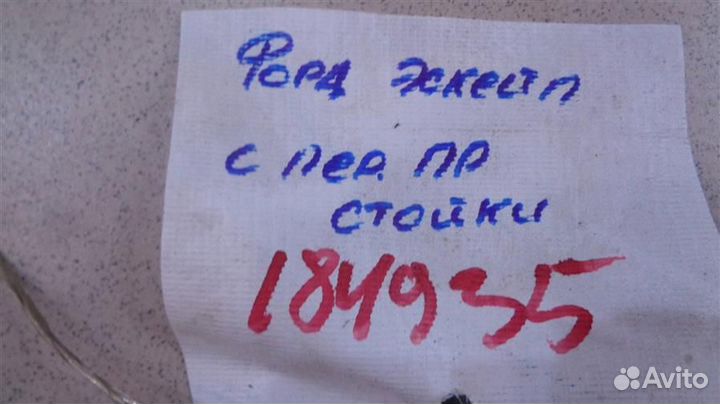 Форд Эскейп
с пер. пр
стойки
184935
Avito